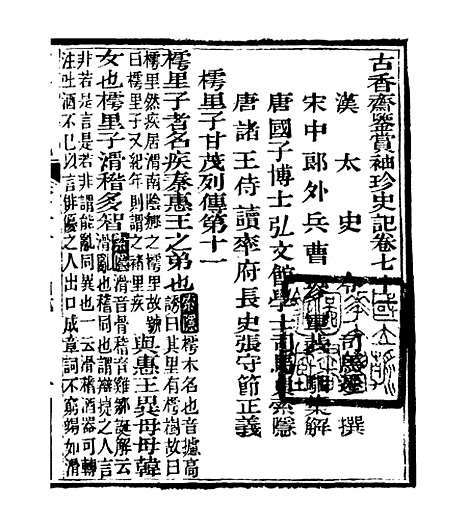 古香齋鑒賞袖珍史記卷七十
漢太史令司馬遷撰
宋中郎外兵曹參軍裴駰集解
唐國子博士弘文館學士司馬貞索隱
唐諸王侍讀率府長史張守節正義
樗里子甘茂列傳第十一
樗里子者名疾秦惠王之弟也索隱樗木名也音攄高
誘曰其里有樗樹故曰
樗里然疾居渭南陰鄉之樗里故號
曰樗里子又紀年則謂之褚里疾與惠王異母母韓
女也樗里子滑稽多智索隱滑音骨稽音雞鄒誕解云
滑亂也稽同也謂辯捷之人言
非若是言是若非謂能亂同異也一云滑稽酒器可轉
注吐酒不已以言俳優之人出口成章詞不窮竭如滑